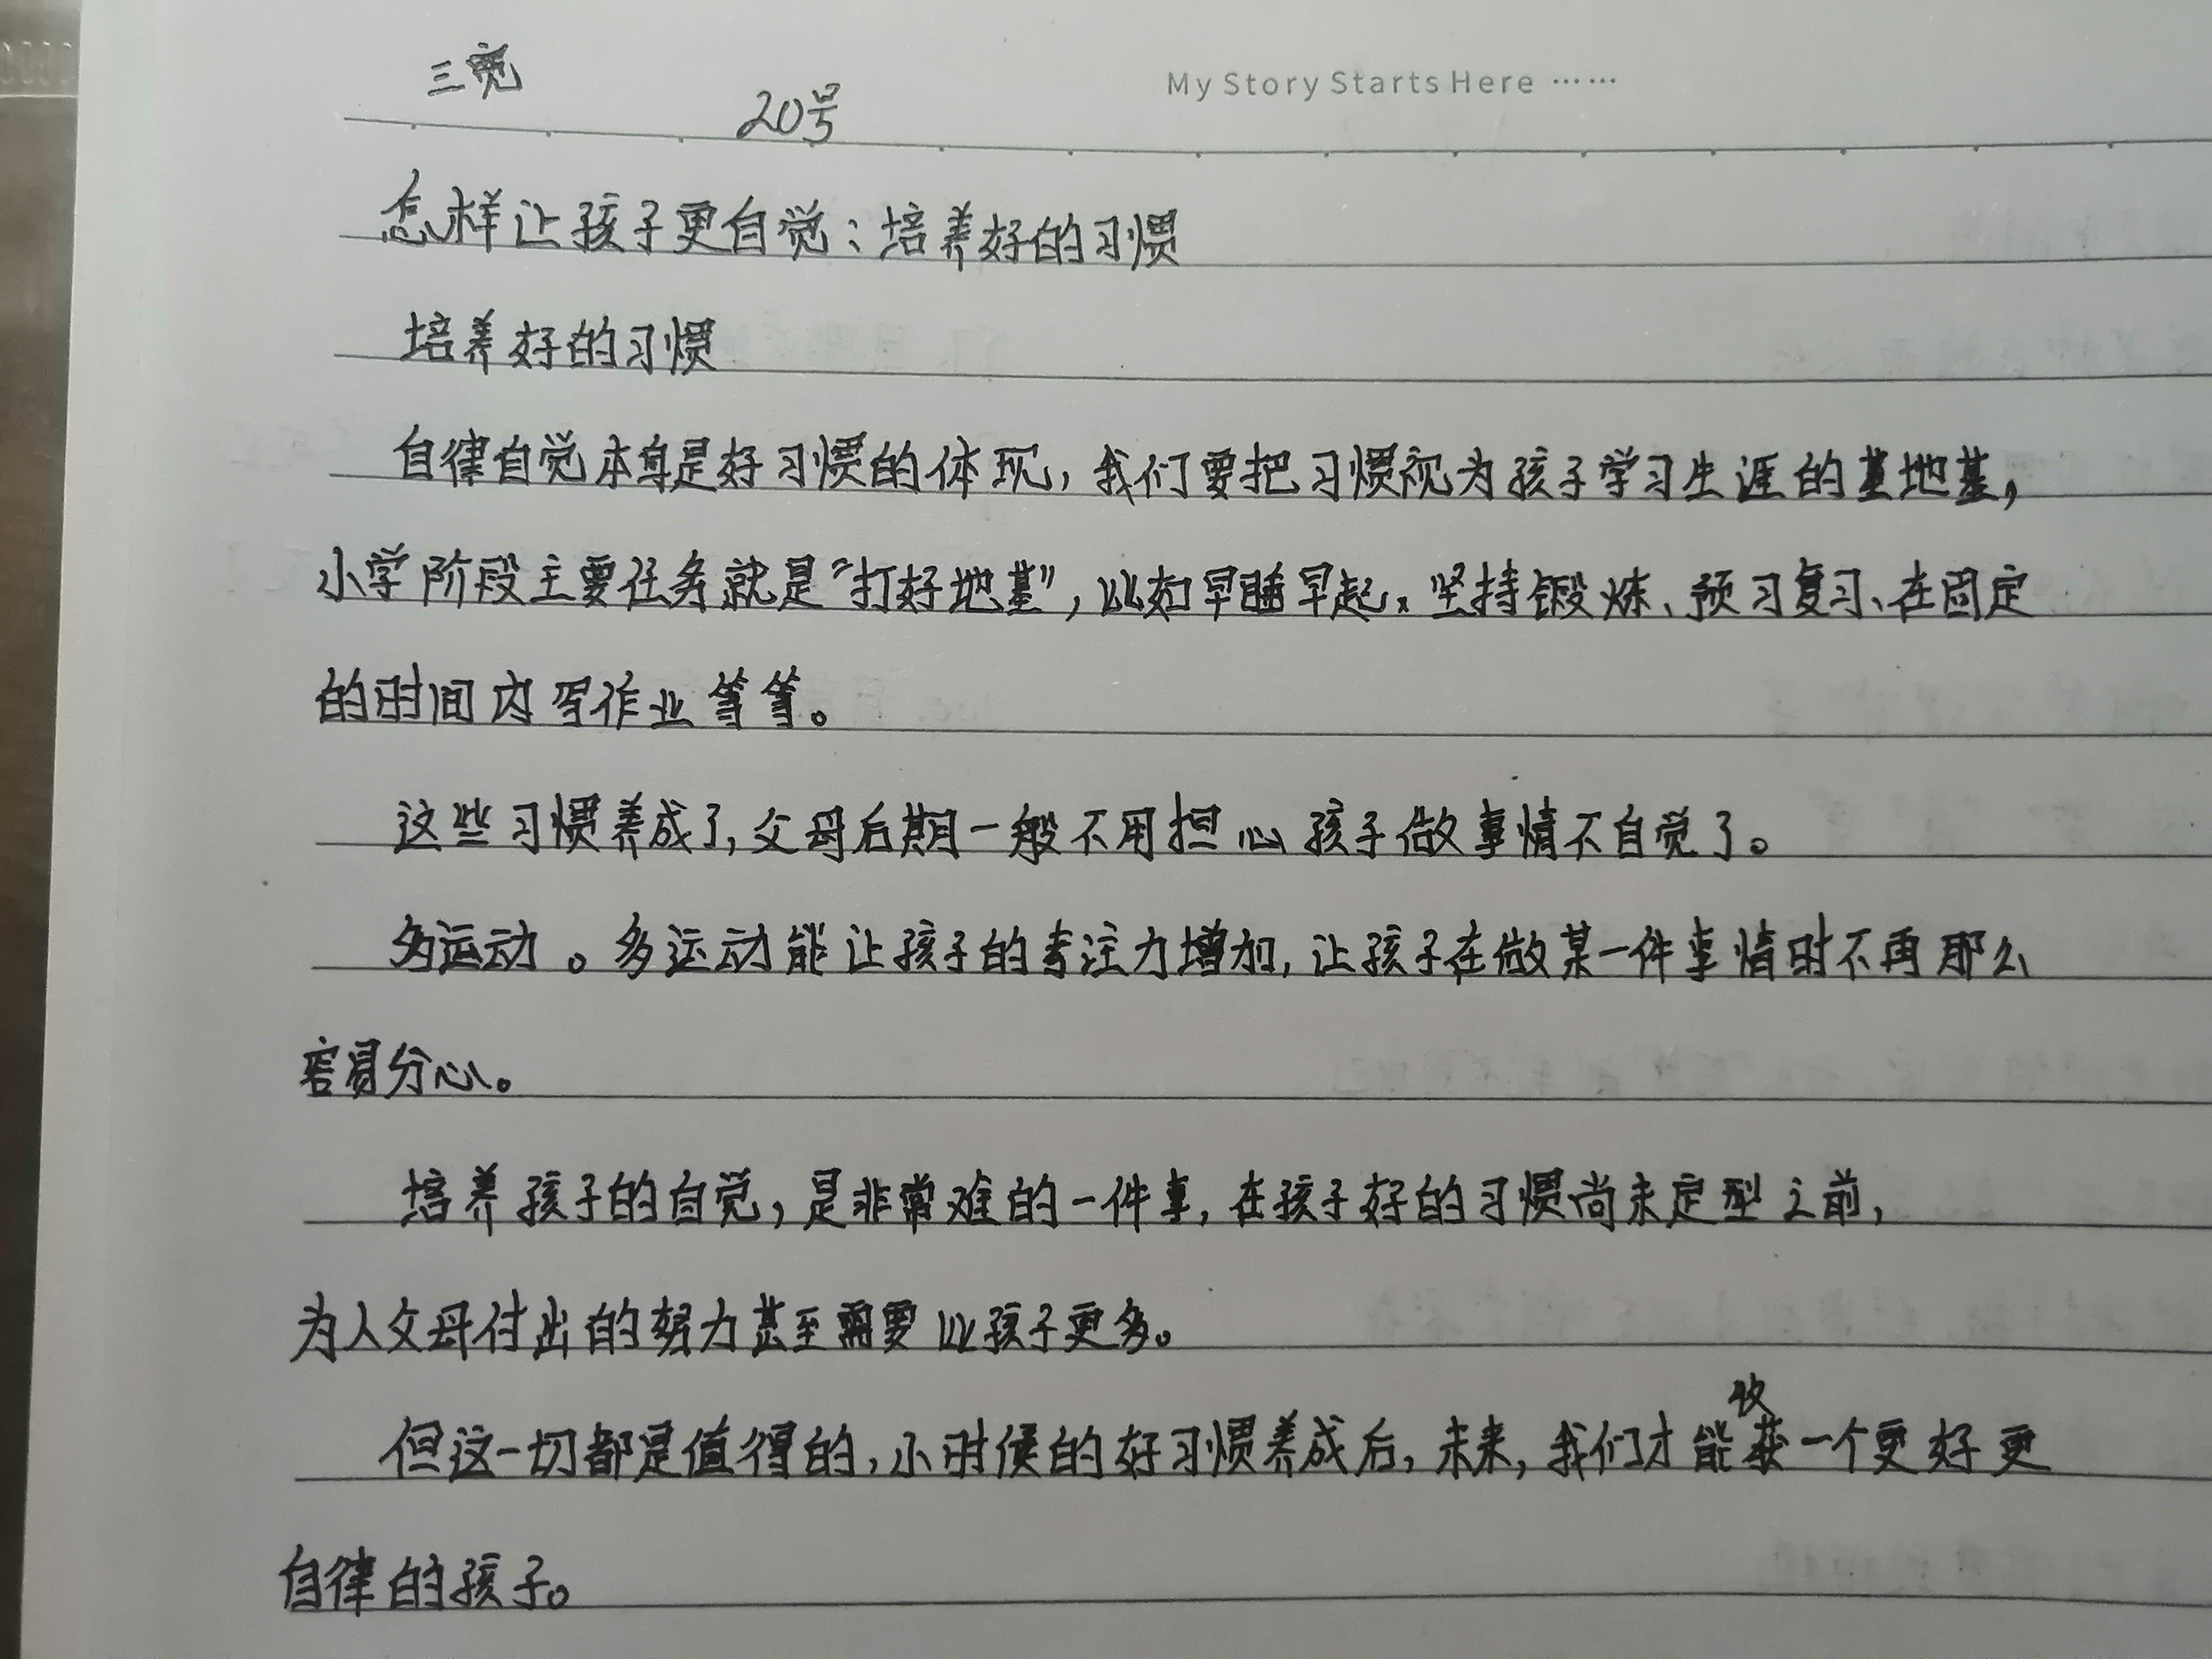 三宽
My Story Starts Here ……
20号
怎样让孩子更自觉：培养好的习惯
培养好的习惯
自律自觉本身是好习惯的体现，我们要把习惯视为孩子学习生涯的基地基，
小学阶段主要任务就是“打好地基”，比如早睡早起、坚持锻炼、预习复习、在固定
的时间内写作业等等。
这些习惯养成了，父母后期一般不用担心孩子做事情不自觉了。
多运动。多运动能让孩子的专注力增加，让孩子在做某一件事情时不再那么
容易分心。
培养孩子的自觉，是非常难的一件事，在孩子好的习惯尚未定型之前，
为人父母付出的努力甚至需要比孩子更多。
但这一切都是值得的，小时候的好习惯养成后，未来，我们才能收获一个更好更
自律的孩子。